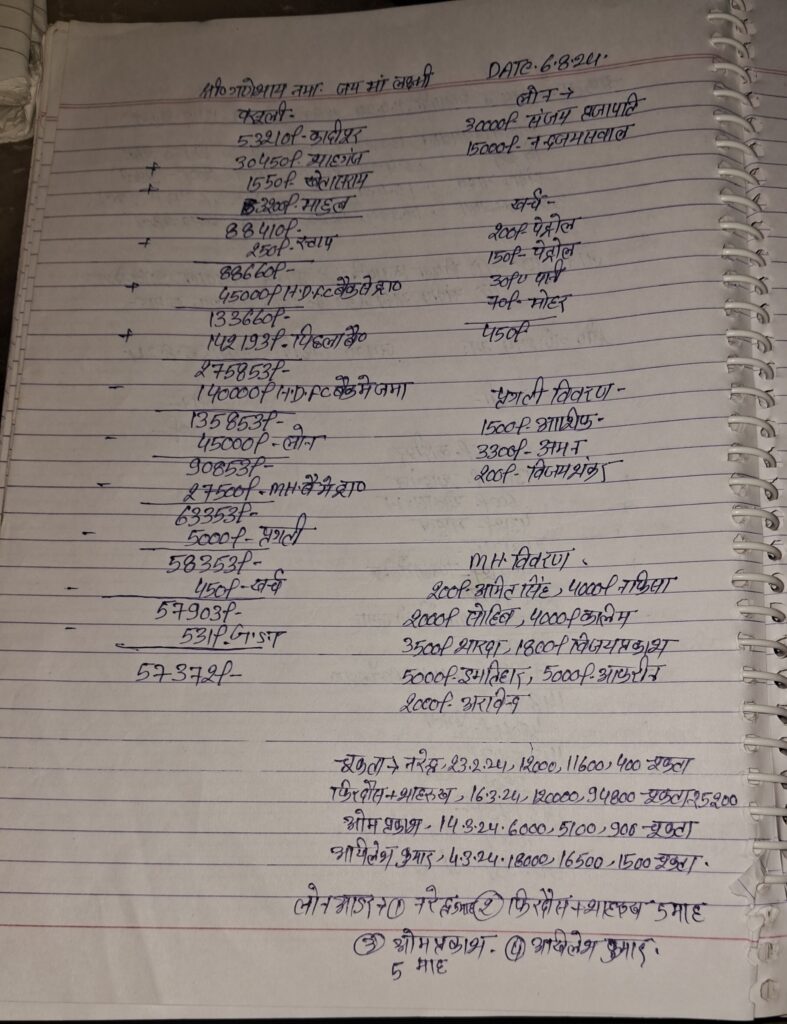 श्री गणेशाय नमः जय माँ लक्ष्मी DATE. 6.8.24.
वसूली:-
53210/- कादीपुर
+ 30450/- शाहगंज
+ 1550/- खेतासराय
3200/- माहुल
88410/-
+ 250/- स्टाम्प
88660/-
+ 45000/- H.D.F.C बैंक से प्रा०
133660/-
+ 142193/- पिछला बै०
275853/-
- 140000/- H.D.F.C बैंक मे जमा
135853/-
- 45000/- लोन
90853/-
- 27500/- MH. बै मे प्रा०
63353/-
- 5000/- प्रगती
58353/-
- 450/- खर्च
57903/-
- 531/- G.S.T
57372/-
लोन →
30000/- संजय प्रजापति
15000/-
खर्च -
200/- पेट्रोल
150/- पेट्रोल
30/- पानी
70/- मोहर
450/-
प्रगती विवरण -
1500/-
3300/- अमन
200/- विजयशंकर
MH. विवरण .
200/- अमित सिंह, 4000/- नफिसा
2000/- सोहिल, 4000/- कालिम
3500/- शारदा, 1800/- विजय प्रकाश
5000/- इमतिहाज, 5000/- आफरीन
2000/- अरविन्द
चुकता → नरेन्द्र, 23.2.24, 12000, 11600, 400 चुकता
फिरदौस + शाहरुख, 16.3.24, 120000, 94800 चुकता 25200
ओम प्रकाश - 14.3.24. 6000, 5100, 900 चुकता
अखिलेश कुमार, 4.3.24. 18000, 16500, 1500 चुकता.
लोन → ① नरेन्द्र कुमार ② फिरदौस + शाहरुख 5 माह
③ ओम प्रकाश. ④ अखिलेश कुमार.
5 माह